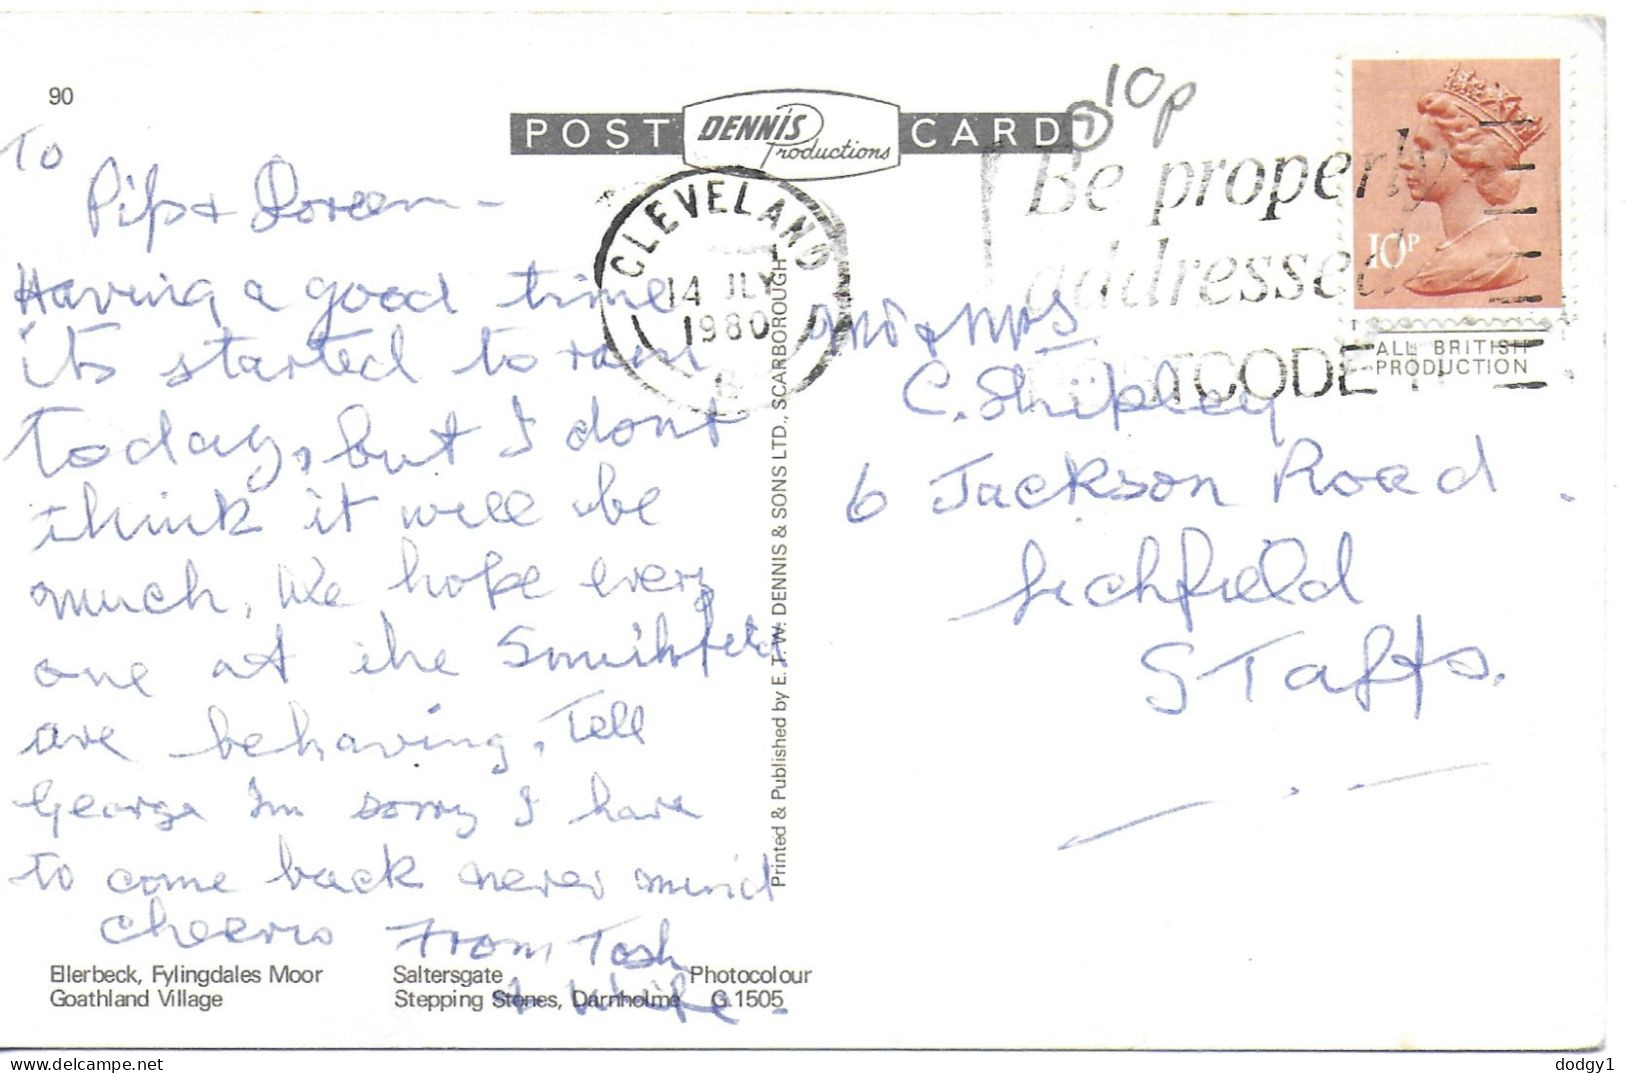 90
POST DENNIS Productions CARD
10p
To
Pip & Doreen -
Having a good time
its started to rain
Today, but I dont
think it will be
much, We hope every
one at the Smithfield
are behaving, Tell
George I'm sorry I have
to come back never mind
cheerio From Tosh
& Wife.
CLEVELAND
14 JLY
1980
Be properly
addressed
POSTCODE IT
10P
ALL BRITISH
PRODUCTION
Mr & Mrs
C. Shipley
6 Jackson Road.
Lichfield
STaffs.
Printed & Published by E. T. W. DENNIS & SONS LTD., SCARBOROUGH
Ellerbeck, Fylingdales Moor Saltersgate Photocolour
Goathland Village Stepping Stones, Darnholme G.1505
delcampe.net
dodgy1